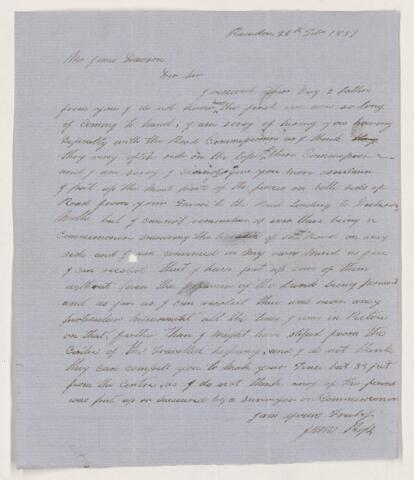 Rawdon 28th Feb 1857
Mr James Dawson
Dear Sir
I received yours Day & letter
from you I do not know the first one was so long
of coming to hand, I am sorry of hearing you having
difficulty with the Road Commissioners as I think
they very often side on the
and I am sorry I cannot give you more assistance
I put up the most part of the fences on both sides of
Road from your farm to the Road leading to
but I cannot remember of ever there being a
Commissioner measuring the of the Road on any
side and I am convinced in my own mind as far
I can recolect that I have put up some of them
without even the of the Lands being present
and as far as I can recolect there was never any
measurment all the time I was in Pictou
on that, farther than I might have steped from the
Centre of the Travelled highway, and I do not think
they can compell you to think your fence but 33 feet
from the Centre, as I do not think any of the fences
was put up or measured by a surveyor or Commissioner
I am yours Truly
James